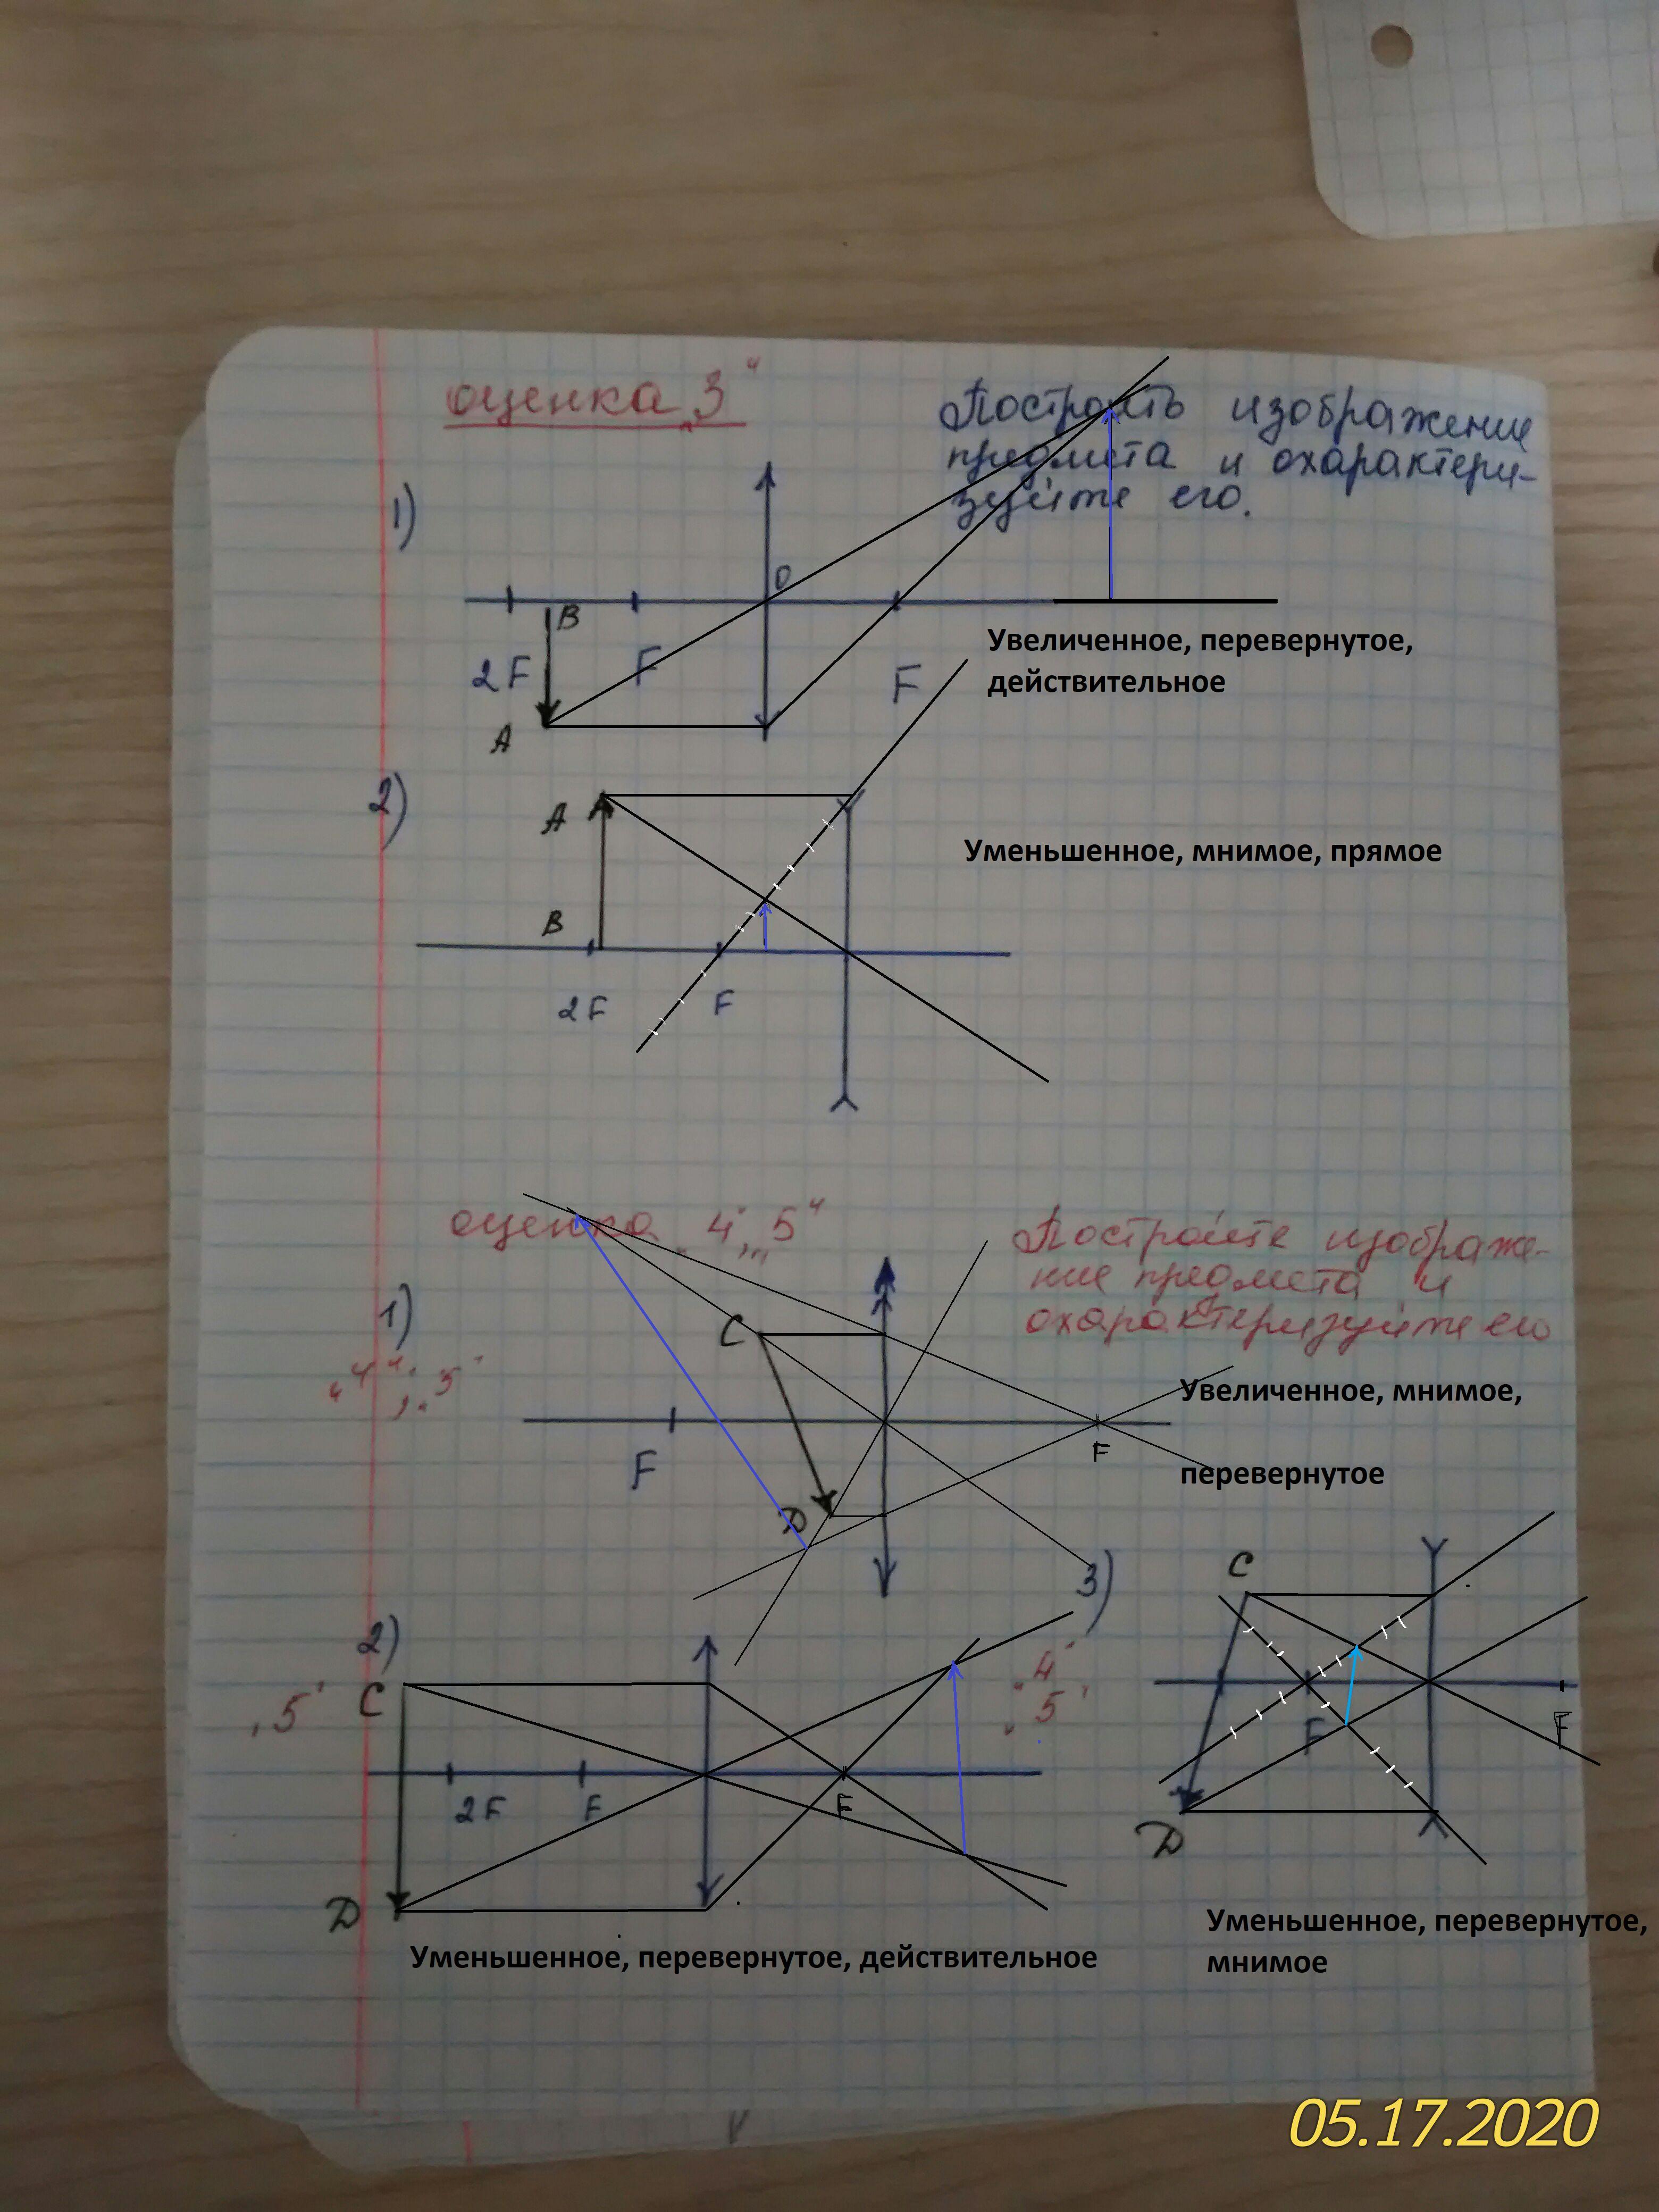 оценка „3“
Построить изображение
предмета и охарактери-
зуйте его.
1)
O
B
2F
F
F
A
Увеличенное, перевернутое,
действительное
2)
A
Уменьшенное, мнимое, прямое
B
2F
F
оценка „4“, „5“
Постройте изображе-
ние предмета и
охарактеризуйте его
1)
„4“, „5“
C
F
F
D
Увеличенное, мнимое,
перевернутое
2)
„5“
C
2F
F
F
D
Уменьшенное, перевернутое, действительное
3)
„4“
„5“
C
F
F
D
Уменьшенное, перевернутое,
мнимое
05.17.2020